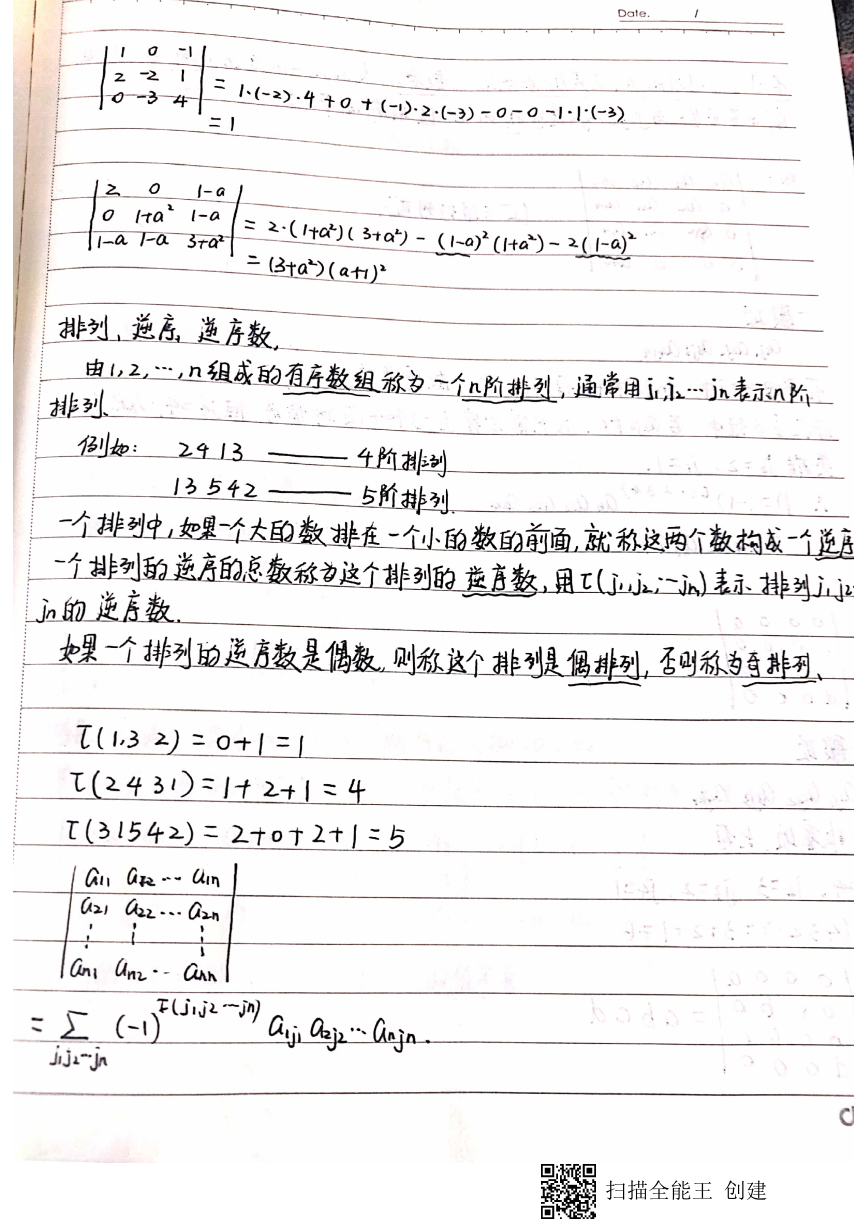 Date. /
| 1 0 -1 |
| 2 -2 1 | = 1·(-2)·4+0+(-1)·2·(-3)-0-0-1·1·(-3)
| 0 -3 4 |
=1
| 2 0 1-a |
| 0 1+a² 1-a | = 2·(1+a²)(3+a²)-(1-a)²(1+a²)-2(1-a)²
| 1-a 1-a 3+a² |
= (3+a²)(a+1)²
排列、逆序、逆序数.
由1,2,…,n组成的有序数组称为一个n阶排列,通常用j₁j₂…jn表示n阶
排列.
例如: 2413 —— 4阶排列
13542 —— 5阶排列.
一个排列中,如果一个大的数排在一个小的数的前面,就称这两个数构成一个逆序
一个排列的逆序的总数称为这个排列的逆序数,用τ(j₁j₂,…jn)表示排列j₁j₂
jn的逆序数.
如果一个排列的逆序数是偶数,则称这个排列是偶排列,否则称为奇排列、
τ(1.32)=0+1=1
τ(2431)=1+2+1=4
τ(31542)=2+0+2+1=5
| a11 a12 … a1n |
| a21 a22 … a2n |
| ⋮ ⋮ ⋮ |
| an1 an2 … ann |
= ∑ (-1)^τ(j₁j₂…jn) a1j₁ a2j₂ … anjn.
j₁j₂…jn
扫描全能王 创建